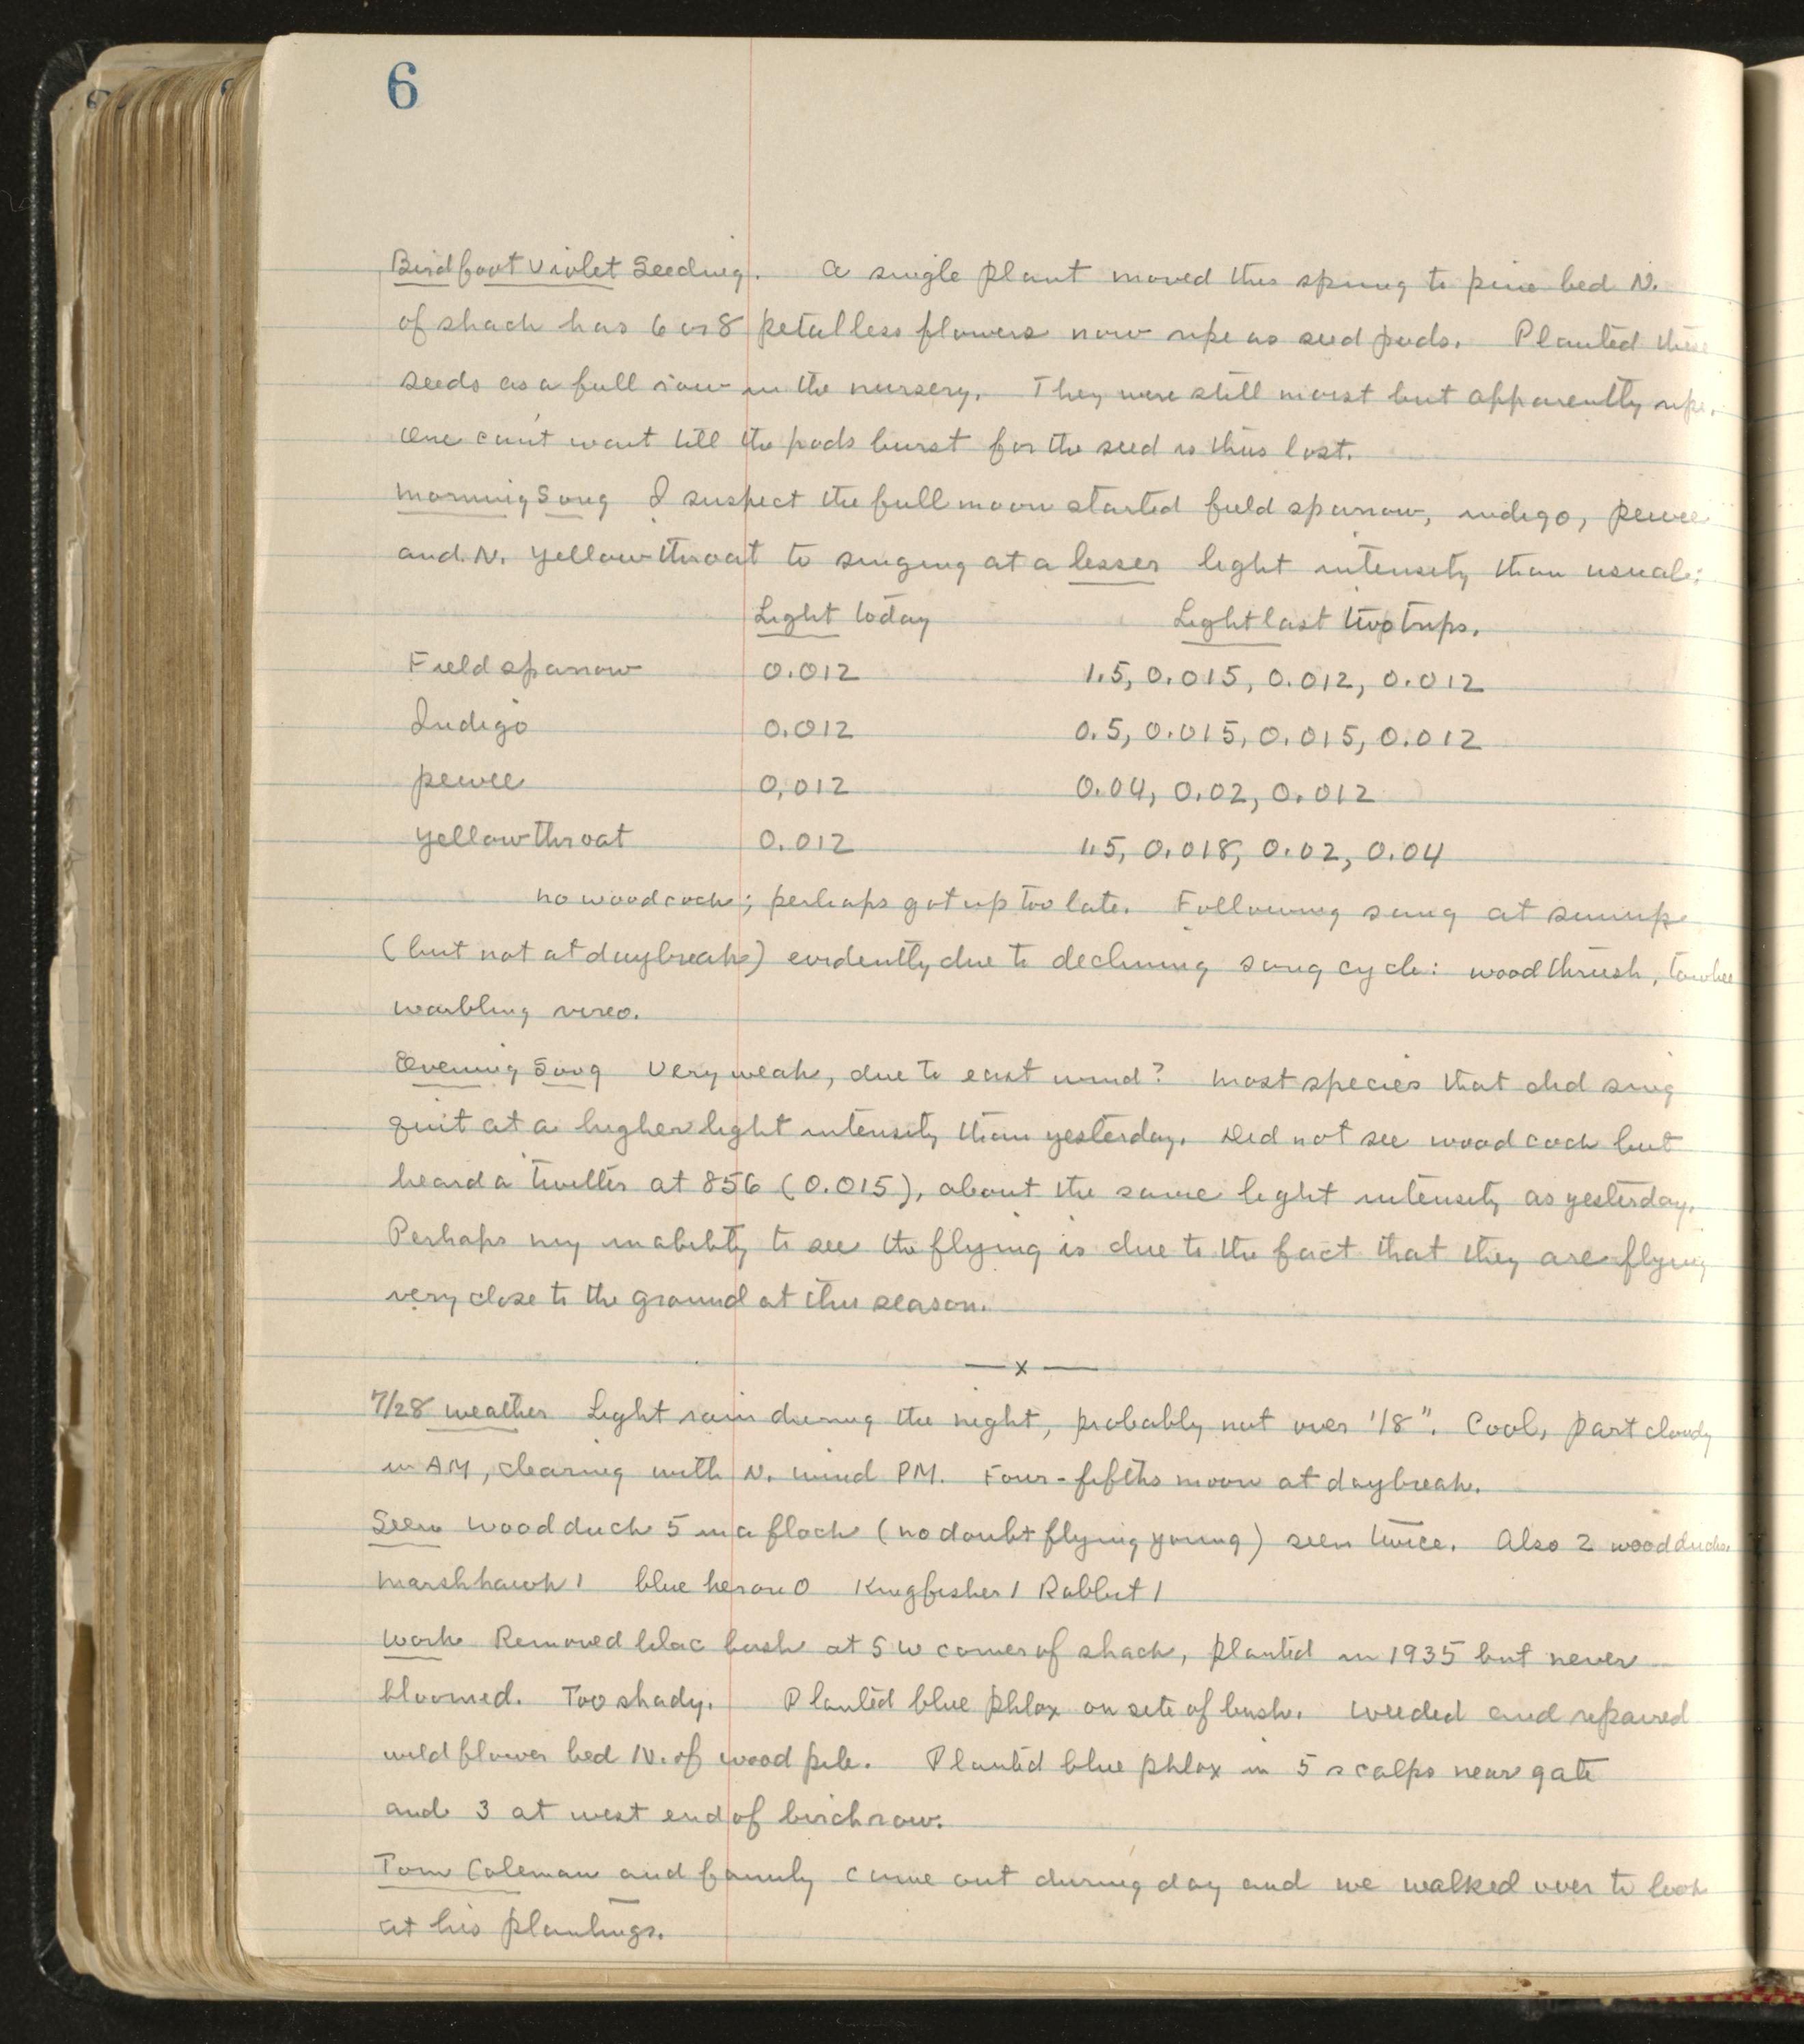 6
Birdfoot Violet Seeding. A single plant moved this spring to pine bed N.
of shack has 6 or 8 petalless flowers now ripe as seed pods. Planted these
seeds as a full row in the nursery. They were still moist but apparently ripe.
One can't wait till the pods burst for the seed is thus lost.
Morning Song I suspect the full moon started field sparrow, indigo, pewee
and N. Yellowthroat to singing at a lesser light intensity than usual:
Light today Light last two trips.
Field sparrow 0.012 1.5, 0.015, 0.012, 0.012
Indigo 0.012 0.5, 0.015, 0.015, 0.012
pewee 0.012 0.04, 0.02, 0.012
Yellowthroat 0.012 1.5, 0.018, 0.02, 0.04
No woodcock; perhaps got up too late. Following sang at sunup
(but not at daybreak) evidently due to declining song cycle: wood thrush, towhee
warbling vireo.
Evening Song Very weak, due to east wind? Most species that did sing
quit at a higher light intensity than yesterday. Did not see woodcock but
heard a twitter at 856 (0.015), about the same light intensity as yesterday.
Perhaps my inability to see the flying is due to the fact that they are flying
very close to the ground at this season.
— x —
7/28 Weather Light rain during the night, probably not over 1/8". Cool, part cloudy
in AM, clearing with N. wind PM. Four-fifths moon at daybreak.
Seen Wood duck 5 in a flock (no doubt flying young) seen twice. Also 2 wood ducks.
Marsh hawk 1 blue heron 0 Kingfisher 1 Rabbit 1
Work Removed lilac bush at SW corner of shack, planted in 1935 but never
bloomed. Too shady. Planted blue phlox on site of bush. Weeded and repaired
wildflower bed N. of wood pile. Planted blue phlox in 5 scalps near gate
and 3 at west end of birch row.
Tom Coleman and family came out during day and we walked over to look
at his plantings.